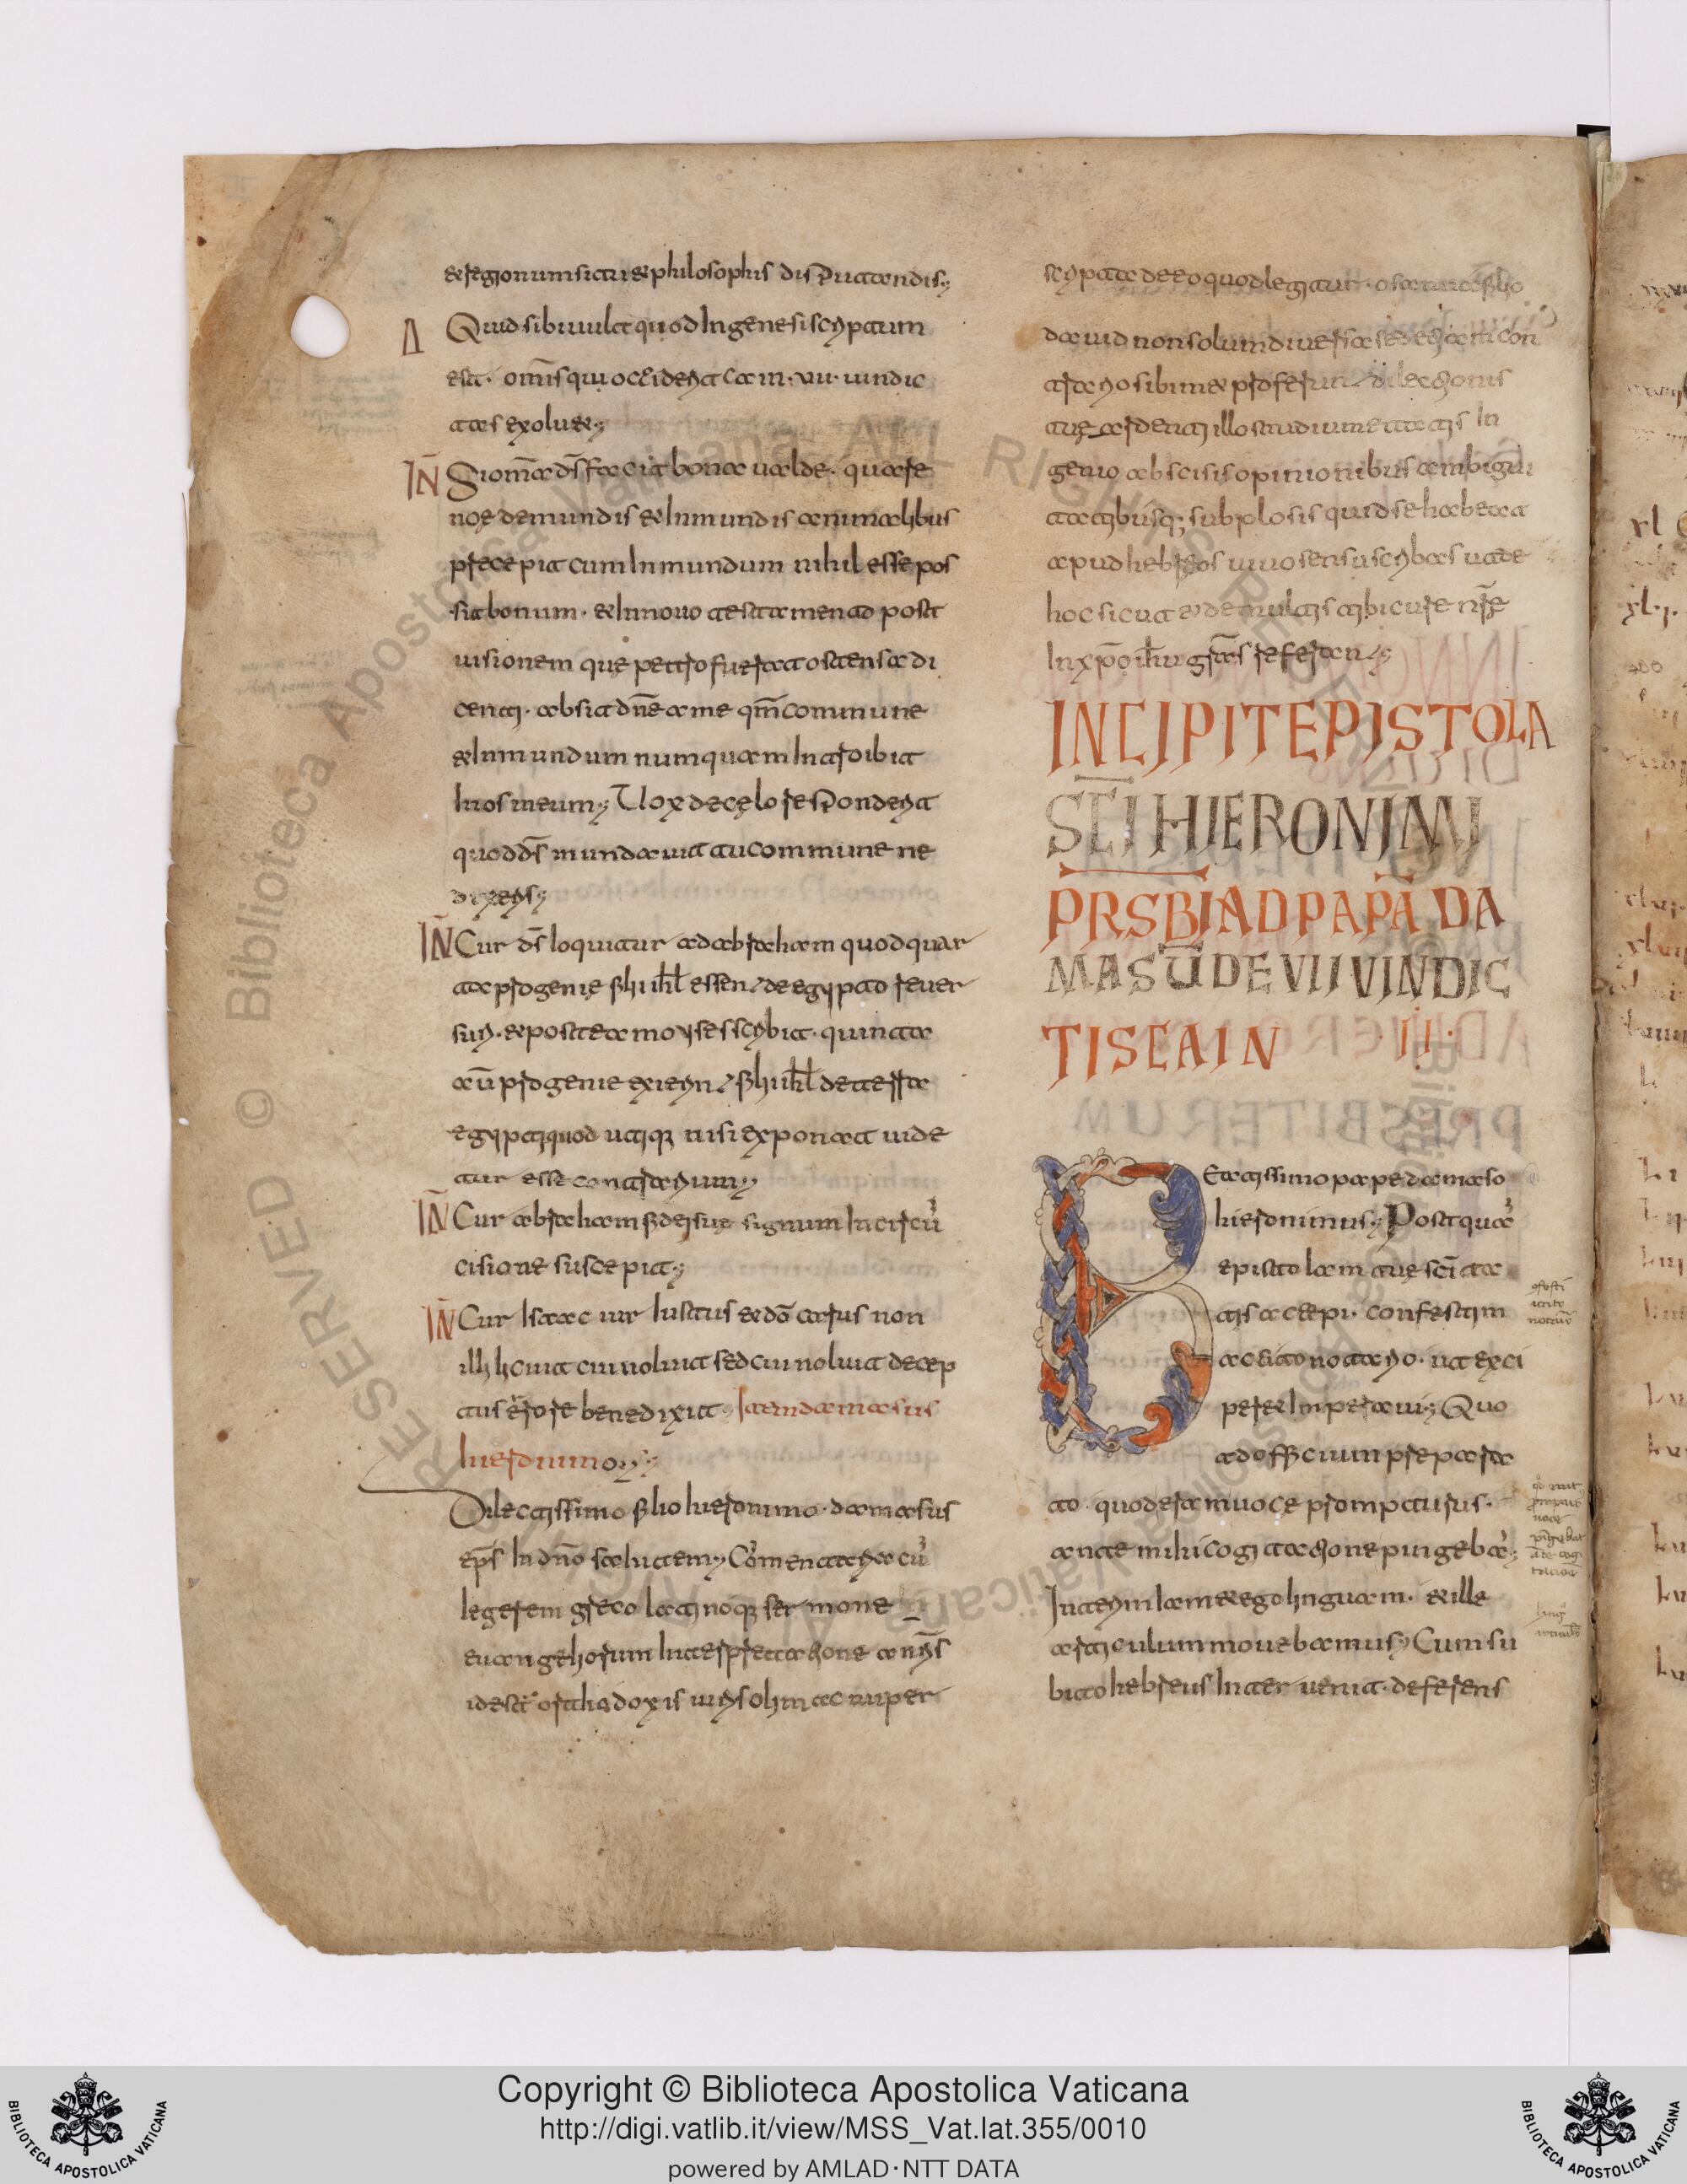 & regionum situ & philosophis disputandis;
Δ Quid sibi uult quod In genesi scriptum
est· om̄is qui occiderit cain· uii· uindic
tas exoluet;
IN̄ Si om̄a d̄s fecit bona ualde· quare
noę de mundis & Inmundis animalibus
precepit cum Inmundum nihil esse pos
sit bonum· & In nouo testamento post
uisionem quę petro fuerat ostensa di
centi· absit dn̄e a me qm̄ commune
& Inmundum numquam Introibit
In os meum; Uox de cęlo respondent
quod d̄s mundauit tu commune ne
dixeris;
IN̄ Cur d̄s loquitur ad abraham quod quar
ta progenię filii isrl̄ essent de egypto reuer
suri· & postea moyses scribit· quinta
aū progenie exierunt filii isrl̄ de terra
egypti quod utiq; nisi exponat uide
tur esse contrarium;
IN̄ Cur abraham fidei suę signum In circū
cisione suscepit;
IN̄ Cur Isaac uir Iustus & dō carus non
illi cui uoluit sed cui noluit decep
tus errore benedixit; Item damasus
hieronimo;
Dilectissimo filio hieronimo· damasus
ep̄s In dn̄o salutem; Comentaria cū
legerem greco latinoq; sermone In
euangeliorum Interpretatione a nr̄is
idest orthodoxis uiris olim ac nuper
scripta de eo quod legitur· osanna filio
dauid non solum diuersa sed etiam con
traria sibimet proferunt dilectionis
tuę est ardenti illo strenuitatis In
genio abscisis opinionibus ambigui
tatibusq; subplosis quid se habeat
apud hebreos uiuo sensu scribas ut de
hoc sicut & de multis tibi curę nr̄ę
In xp̄o ih̄u gratias referant;
INCIPIT EPISTOLA
SC̄I HIERONIMI
PRSB̄I AD PAPĀ DA
MASŪ DE VII VINDIC
TIS CAIN ·II·
BEatissimo papę damaso
hieronimus; Postquā
epistolam tuę sc̄ita
tis accepi· confestim
accito notario· ut exci
peret Imperaui; Quo
ad officium prepara
to· quod eram uoce prompturus·
ante mihi cogitatione pingebā;
Interim iam & ego linguam· & ille
articulum mouebamus; Cum su
bito hebreus Interuenit· deferens
Copyright © Biblioteca Apostolica Vaticana
http://digi.vatlib.it/view/MSS_Vat.lat.355/0010
powered by AMLAD·NTT DATA
BIBLIOTECA APOSTOLICA VATICANA
BIBLIOTECA APOSTOLICA VATICANA